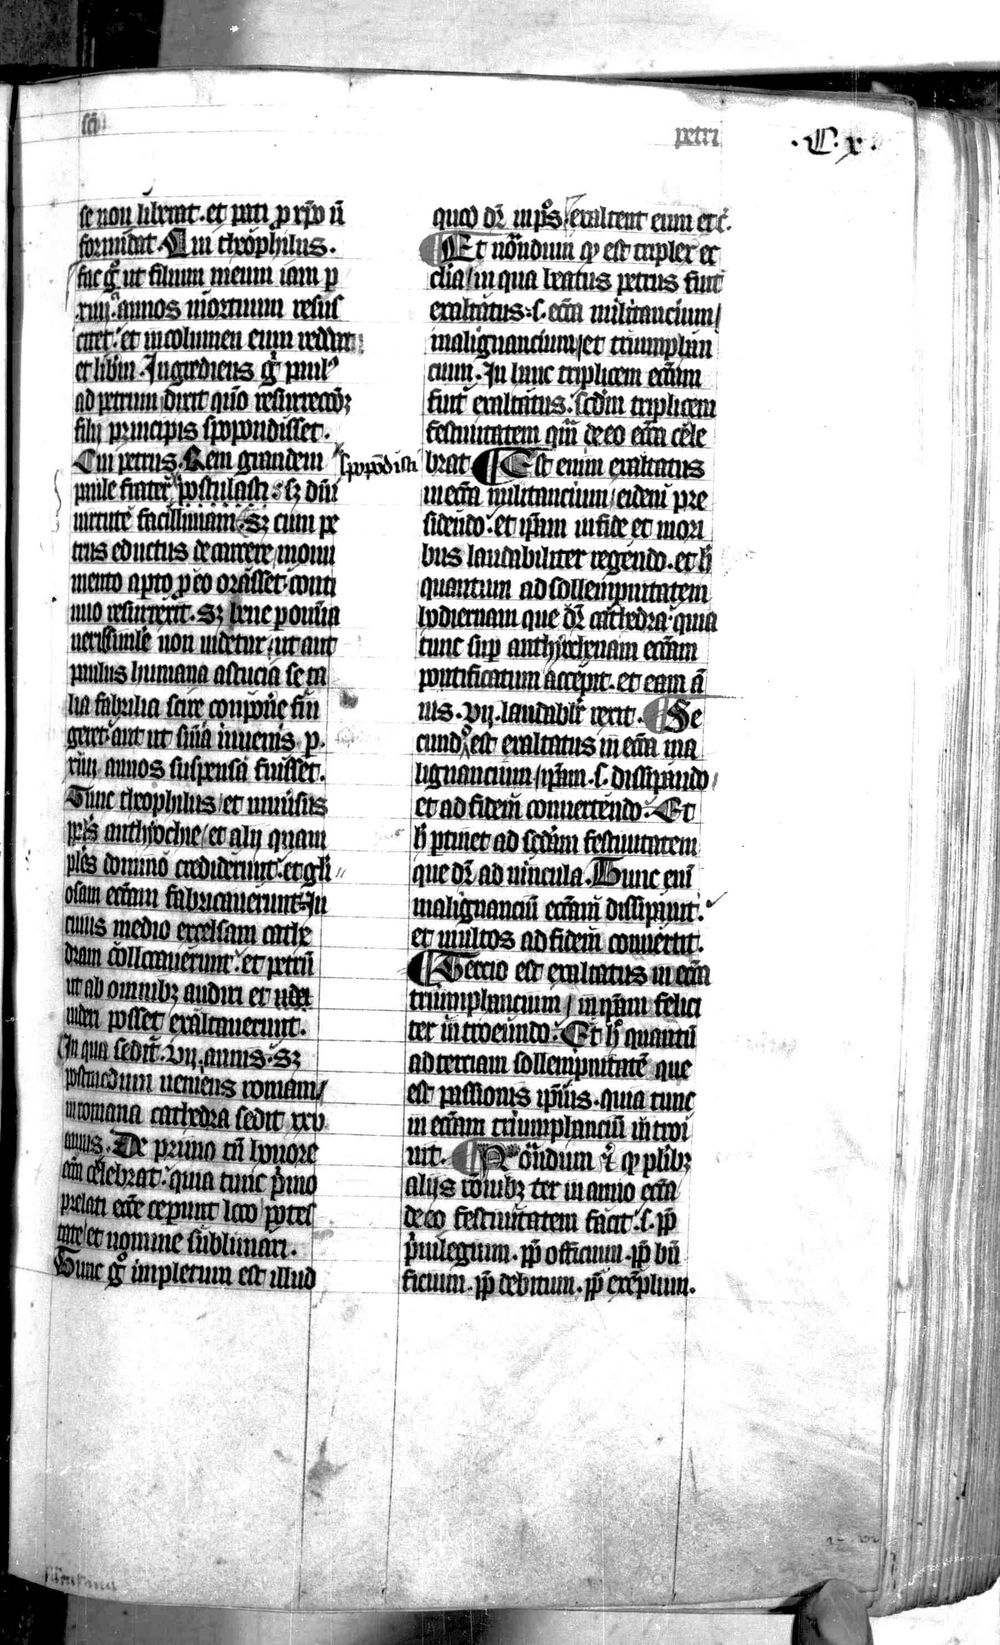 sci
petri
.C.x.
se non liberat. et pati p xpo ñ
formidat. Cui theophilus.
fac gͦ ut filium meum iam p
xiiij. annos mortuum resus
citet. et incolumen eum reddat
et libm. Ingrediens gͦ paulꝰ
ad petrum dixit quō resurrecōꝫ
filij principis spopondisset.
Cui petrus. Rem grandem
spopōdisti
paule frater postulasti. sꝫ dn̄i
uirtute facillimam. Sꝫ cum pe
trus eductus de carcere moni
mento apto p eo orasset conti
nuo resurrexit. Sꝫ bene po
uerissimile non uidetur. ut aut
paulus humana astucia se ta
lia fabrilia scire conpōne fin
geret. aut ut iuuenis p.
xiiij annos suspensa fuisset.
Tunc theophilus et uniusus
pplꝰs anthyochie et alij quam
plēs domino crediderunt. et gli
osam ecc̄am fabricauerunt. In
cuius medio excelsam cathe
dram collocauerunt. et petrū
ut ab omnibꝫ audiri et
uideri posset exaltauerunt.
In qua sedit. vij. annis. Sꝫ
postmodum ueniens romam
in romana cathedra sedit xxv
annis. De primo tn̄ honore
ecc̄ia celebrat. quia tunc pͥmo
prelati ecc̄ie ceperunt loco potes
tate et nomine sublimari.
Tunc gͦ impletum est illud
quod dr̄ in psͦ. exaltent eum et c̄.
Et nōndum qp est triplex ec
clia in qua beatus petrus fuit
exaltatus. s. ecc̄ia militancium
malignancium et triumphan
cium. In hanc triplicem ecc̄iam
fuit exaltatus. scdm triplicem
festiuitatem qm̄ de eo ecc̄ia cele
brat. Est enim exaltatus
in ecc̄ia militancium eidem pre
sidendo. et ipsam in fide et mori
bus laudabiliter regendo. et h̄
quantum ad sollempnitatem
hodiernam que dr̄ cathedra. quia
tunc sup anthyochenam ecc̄iam
pontificatum accepit. et eam ā
nis. vij. laudabilr̄ rexit. Se
cundͦ est exaltatus in ecc̄ia ma
lignancium ip̄am. s. dissipando
et ad fidem conuertendo. Et
h̄ ptinet ad scdam festiuitatem
que dr̄ ad uincula. Tunc eni
malignanciū ecc̄iam dissipauit.
et multos ad fidem conuertit.
Tercio est exaltatus in ecc̄ia
triumphancium in ip̄am felici
ter introeundo. Et h̄ quantū
ad terciam sollempnitatē que
est passionis ip̄ius. quia tunc
in ecc̄iam triumphanciū introi
uit. Nōndum qp plibꝫ
alijs rōnibꝫ ter in anno ecc̄ia
de eo festiuitatem facit. s. pp
pͥuilegium. pp officium. pp bn̄
ficium. pp debitum. pp exēplum.